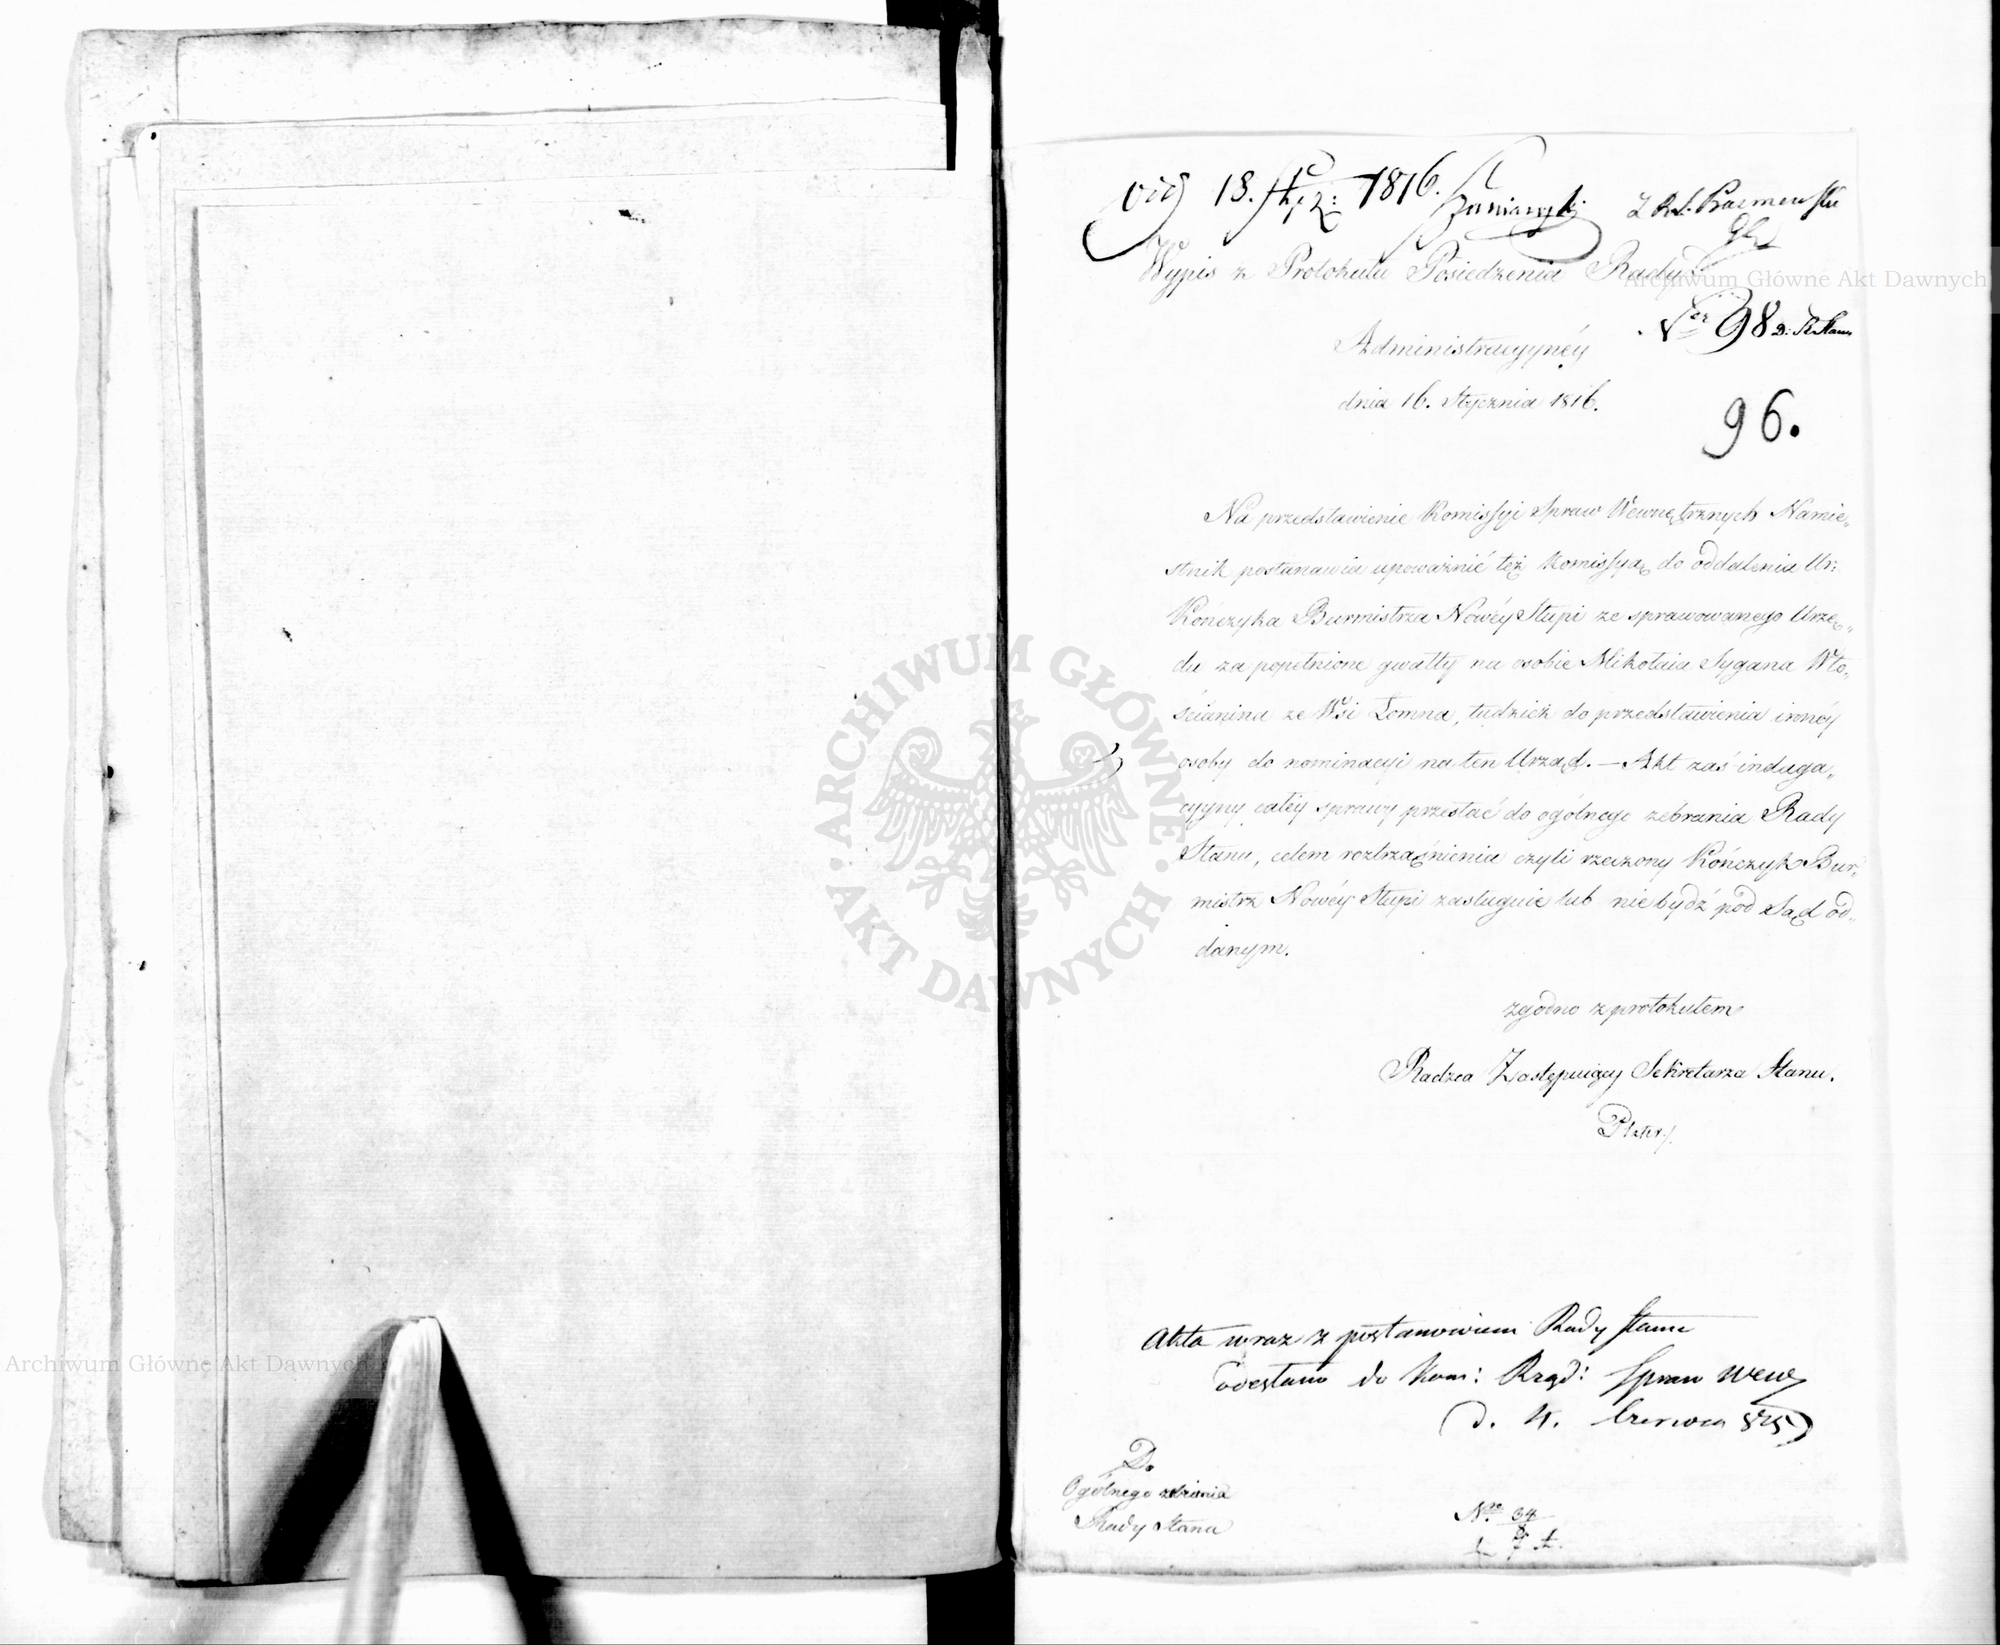 vid 18. Stycz: 1816.
Wypis z Protokułu Posiedzenia Rady
Administracyyney
dnia 16. Stycznia 1816.
Ner 98 D: R. Stanu
96.
Na przedstawienie Komissyi Spraw Wewnętrznych Namie„
stnik postanawia upoważnić też Komissyą do oddalenia Ur:
Kończyka Burmistrza Nowéy Słupi ze sprawowanego Urzę„
du za popełnione gwałty na osobie Mikołaia Sygana Wło„
ścianina ze Wsi Łomna, tudzież do przedstawienia innéy
osoby do nominacyi na ten Urząd. — Akt zaś indaga„
cyyny całéy sprawy przesłać do ogólnego zebrania Rady
Stanu, celem roztrząśnienia czyli rzeczony Kończyk Bur„
mistrz Nowéy Słupi zasługuie lub nie bydź pod Sąd od„
danym.
zgodno z protokułem
Radzca Zastępuiący Sekretarza Stanu.
Plater
Akta wraz z postanowieniem Rady Stanu
odesłano do Kom: Rząd: Spraw Wew
d. 4. Czerwca 825
Do
Ogólnego zebrania
Rady Stanu
Nro 34
Archiwum Główne Akt Dawnych
Archiwum Główne Akt Dawnych
ARCHIWUM GŁÓWNE · AKT DAWNYCH ·